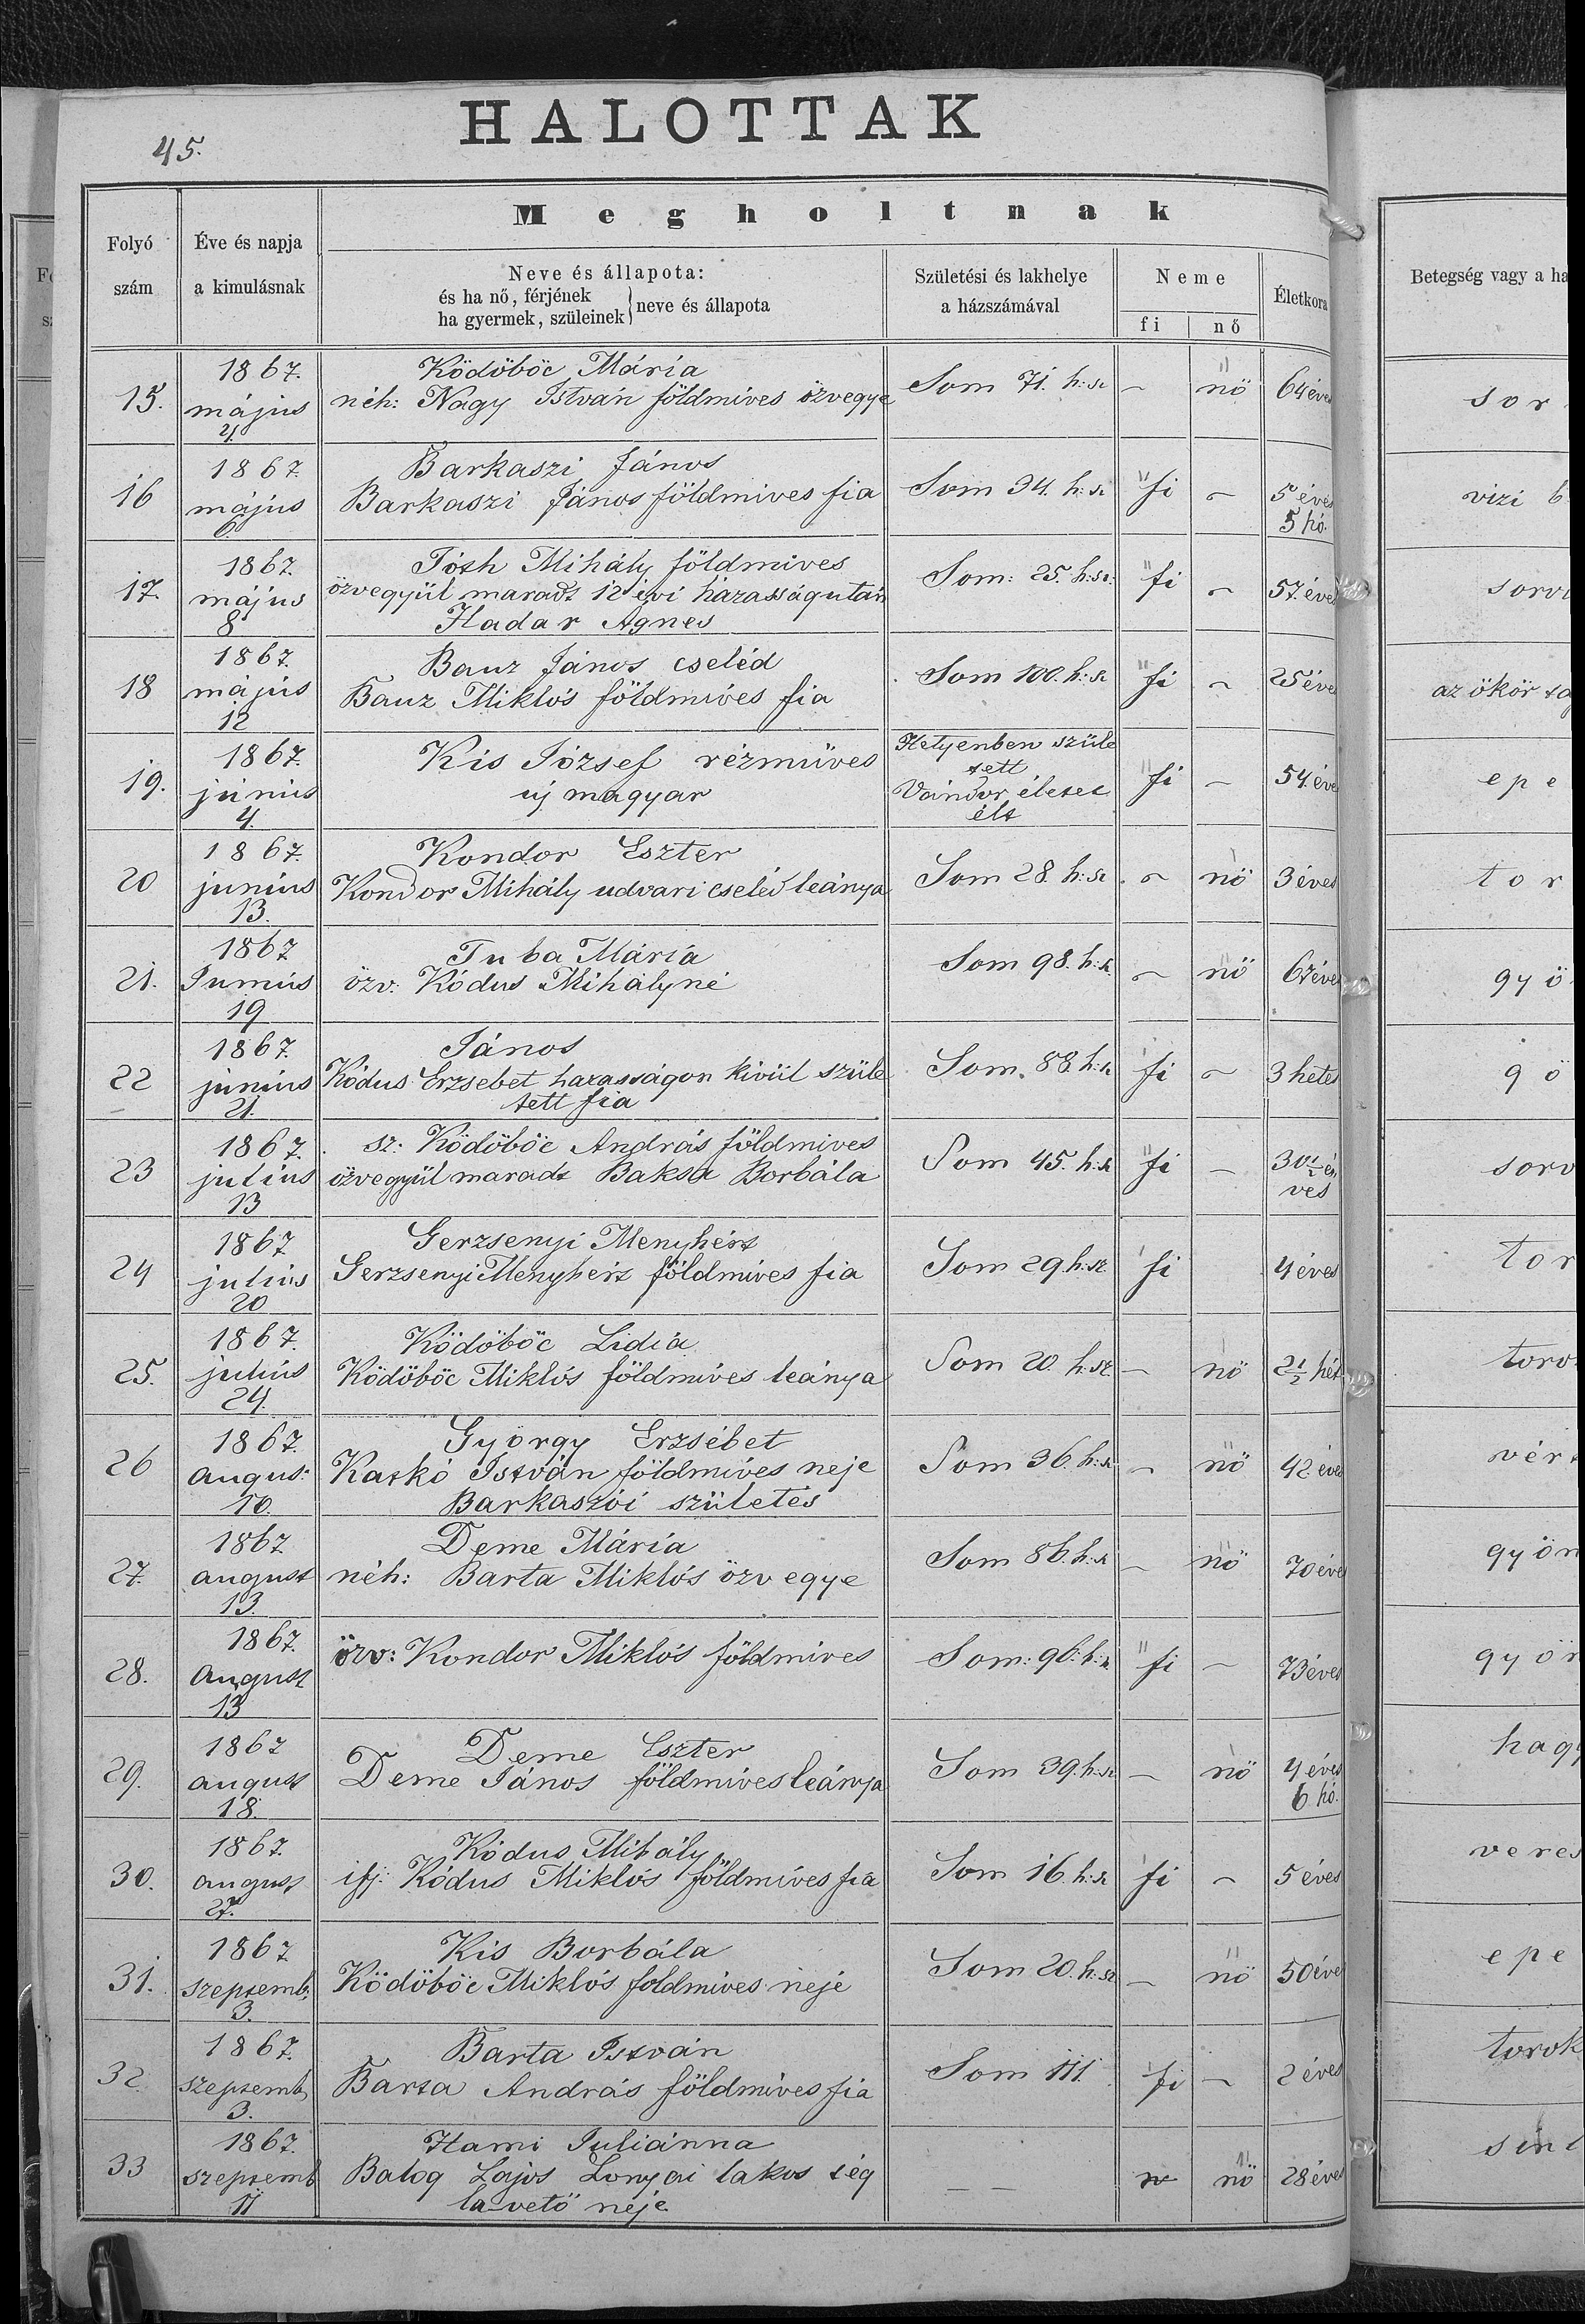 HALOTTAK
45.
Megholtnak
Folyó szám
Éve és napja a kimulásnak
Neve és állapota:
és ha nő, férjének
ha gyermek, szüleinek } neve és állapota
Születési és lakhelye a házszámával
Neme
fi nő
Életkora
Betegség vagy a ha
15. 1867. május 4. Ködöböc Mária
néh: Nagy István földmíves özvegye Som 71. h:sz – nö 64 éves sor
16 1867. május 6. Barkaszi János
Barkaszi János földmives fia Som 94. h:sz fi – 5 éves 5 hó. vizi b
17. 1867. május 8 Tóth Mihály földmives
özvegyül maradt 12 évi házasságután
Hadar Agnes Som: 25. h:sz. fi – 57. éves sorv
18 1867. május 12 Bauz János cseléd
Bauz Miklós földmíves fia Som 100. h:sz fi – 25 éve az ökör
19. 1867. június 4. Kis József rézmüves
új magyar Hetyenben szüle
tett
Vándor életet
élt fi – 54. éve epe
20 1867. junius 13. Kondor Eszter
Kondor Mihály udvari cseléd leánya Som 28. h:sz – nö 3 éves tor
21. 1867 Junius 19 Tuba Mária
özv. Kódus Mihályné Som 98. h:sz – nö 67 éves gyö
22 1867. június 21. János
Kódus Erzsebet hazasságon kivül szüle
tett fia Som. 88. h:sz fi – 3 hetes gö
23 1867. július 13 sz: Ködöböc András földmives
özvegyül maradt Baksa Borbála Som 45. h:sz fi – 30 1/2 é
ves sorv
24 1867 július 20 Gerzsenyi Menyhért
Gerzsenyi Menyhért földmíves fia Som 29 h:sz fi 4 éves tor
25. 1867. július 24. Ködöböc Lidia
Ködöböc Miklós földmíves leánya Som 20. h:sz. – nö 2 1/2 hét toro
26 1867. augus: 10. György Erzsébet
Katkó István földmíves neje
Barkaszói születés Som 36 h:sz – nö 42 éve vér
27. 1867 august 13. Deme Mária
néh: Barta Miklós özvegye Som 86. h:sz – nö 70 éve gyön
28. 1867. August 13 özv: Kondor Miklós földmíves Som: 96. h:sz fi – 73 éves gyön
29. 1867 august 18. Deme Eszter
Deme János földmíves leánya Som 39. h:sz – nö 4 éves
6 hó. hagy
30. 1867. august 27. Kódus Mihály
ifj: Kódus Miklós földmíves fia Som 16. h:sz fi – 5 éves veres
31. 1867 szeptemb. 3. Kis Borbála
Ködöböc Miklós foldmíves neje Som 20. h:sz – nö 50 éves epe
32 1867. szeptemb 3. Barta István
Barta András földmíves fia Som 111. fi – 2 éves torok
33 1867. szeptemb 11 Hami Juliánna
Balog Lajos Lonyai lakos tég
la-vető neje – – nö 28 éves